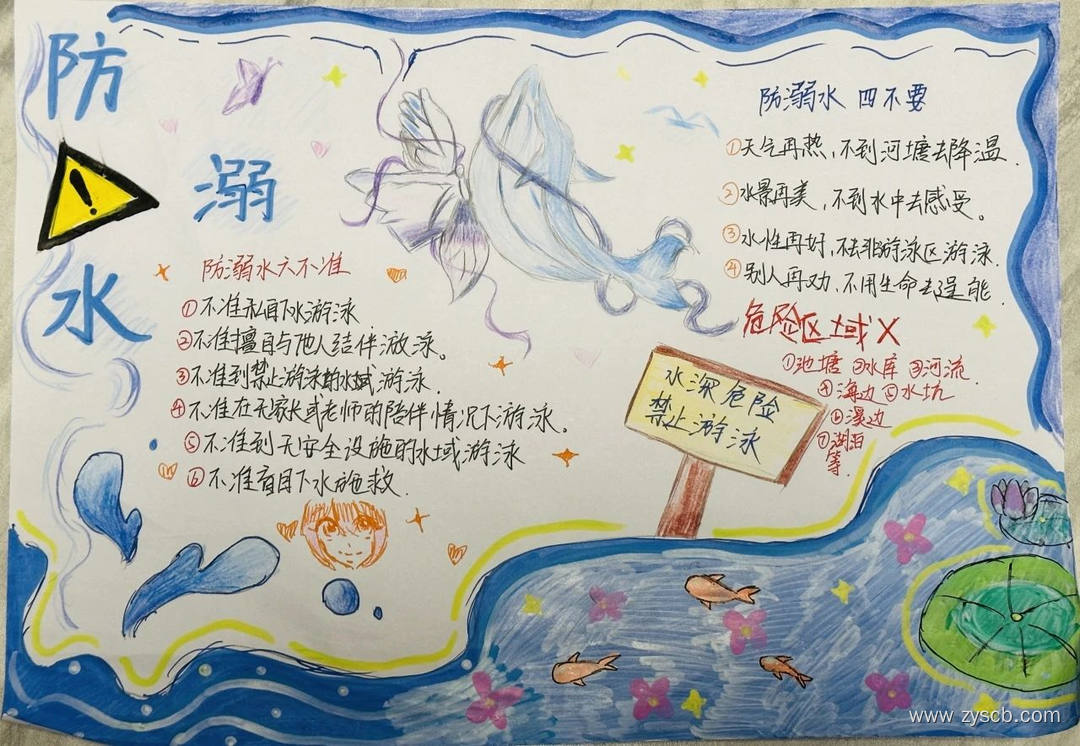 防
溺
水
防溺水六不准
①不准私自下水游泳
②不准擅自与他人结伴游泳。
③不准到禁止游泳的水域游泳.
④不准在无家长或老师的陪伴情况下游泳。
⑤不准到无安全设施的水域游泳
⑥不准盲目下水施救.
防溺水 四不要
①天气再热,不到河塘去降温.
②水景再美,不到水中去感受。
③水性再好,不去非游泳区游泳.
④别人再劝,不用生命去逞能.
危险区域X
①池塘 ②水库 ③河流.
④海边 ⑤水坑
⑥溪边
⑦湖泊
等.
水深危险
禁止游泳
www.zyscb.com